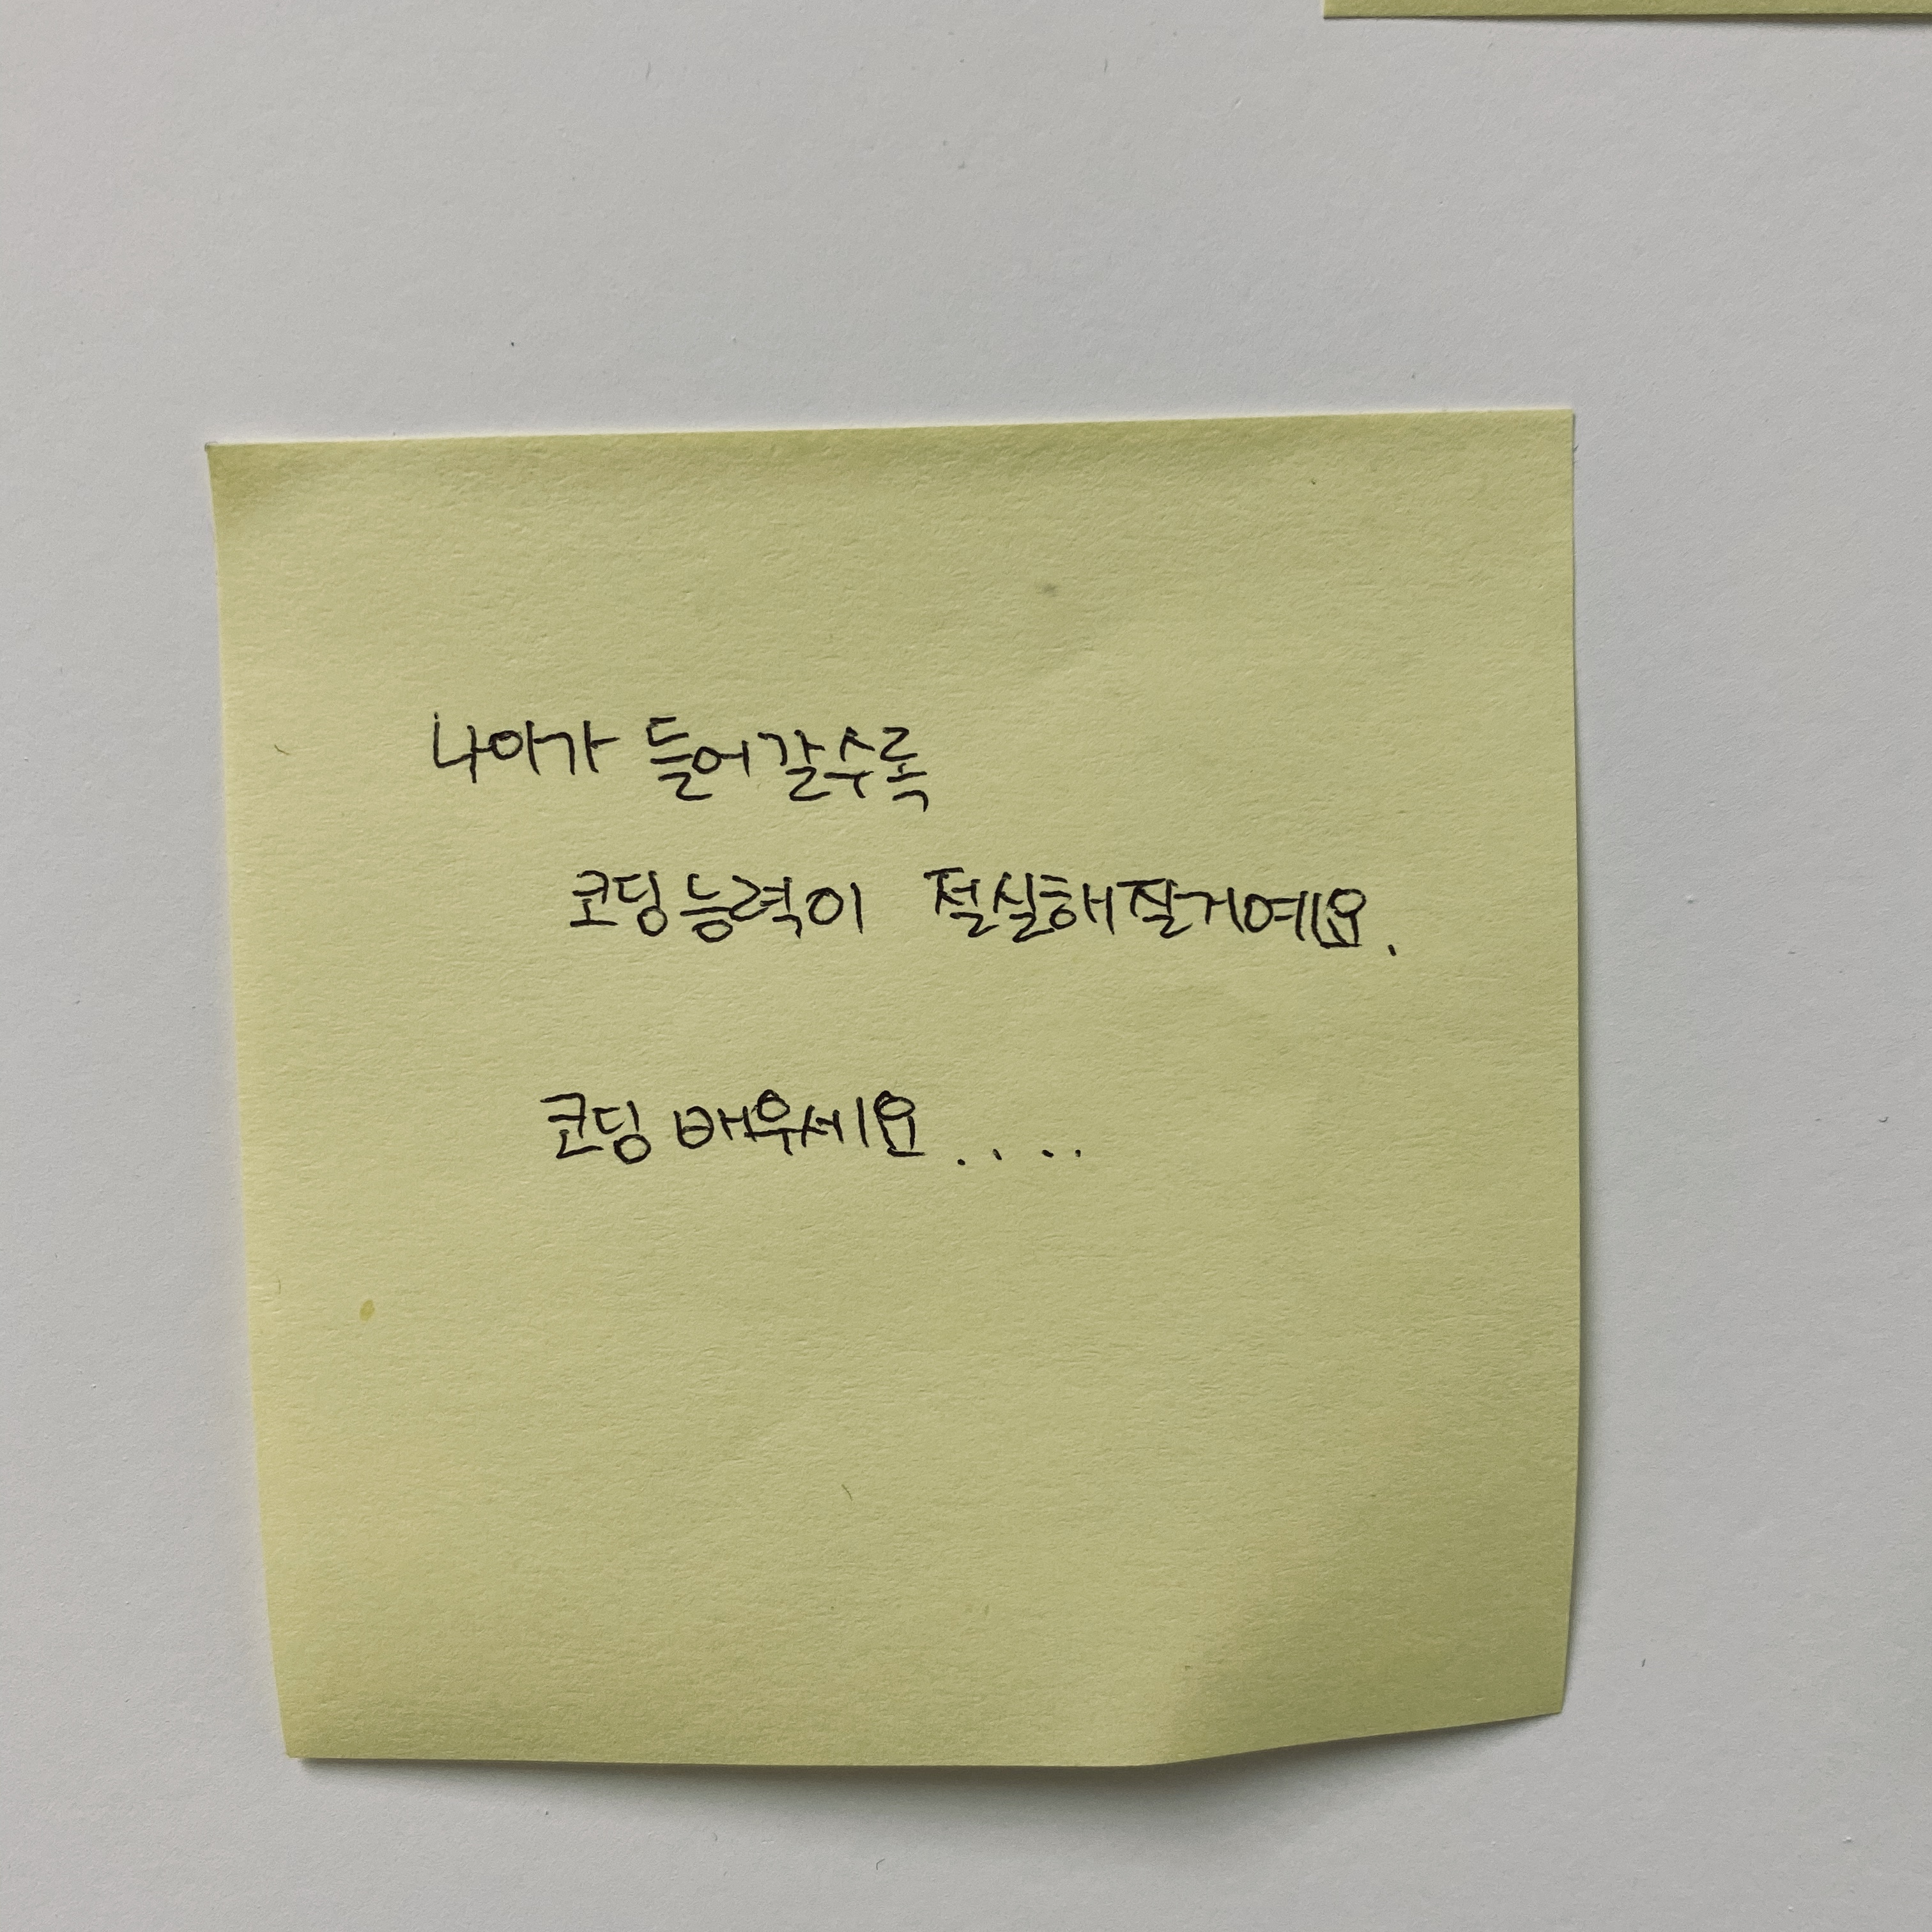 나아가 들어갈수록
코딩능력이 절실해질거예요.
코딩 배우세요....